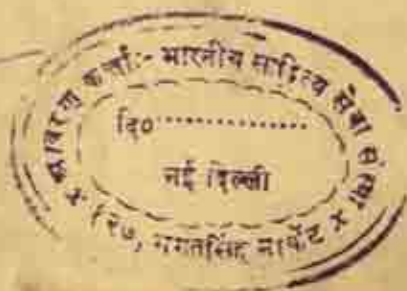 आवरण कर्ता:- भारतीय साहित्य सेवा संस्था X
दि०...............
नई दिल्ली
१२७, भगतसिंह मार्केट X